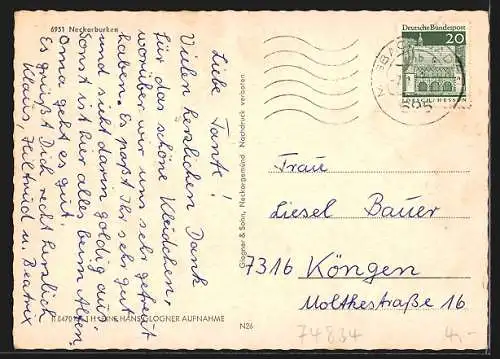 6951 Neckarburken
Liebe Tante!
Vielen herzlichen Dank
für das schöne Kleidchen,
worüber wir uns sehr gefreut
haben. Es paßt Ihr sehr gut
und sieht darin goldig aus.
Sonst ist hier alles beim Alten.
Oma geht es gut.
Es grüßt Dich recht herzlich
Klaus, Heiltrud u. Beatrix
HANS GLOGNER AUFNAHME
N26
Glogner & Sohn, Neckargemünd Nachdruck verboten
Deutsche Bundespost
20
LORSCH/HESSEN
695
Frau
Liesel Bauer
7316 Köngen
Moltkestraße 16
74834
4,-